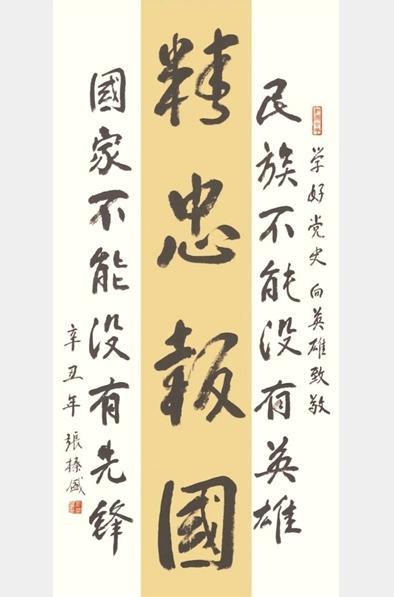 学好党史 向英雄致敬
民族不能没有英雄
精忠報國
國家不能没有先鋒
辛丑年 張